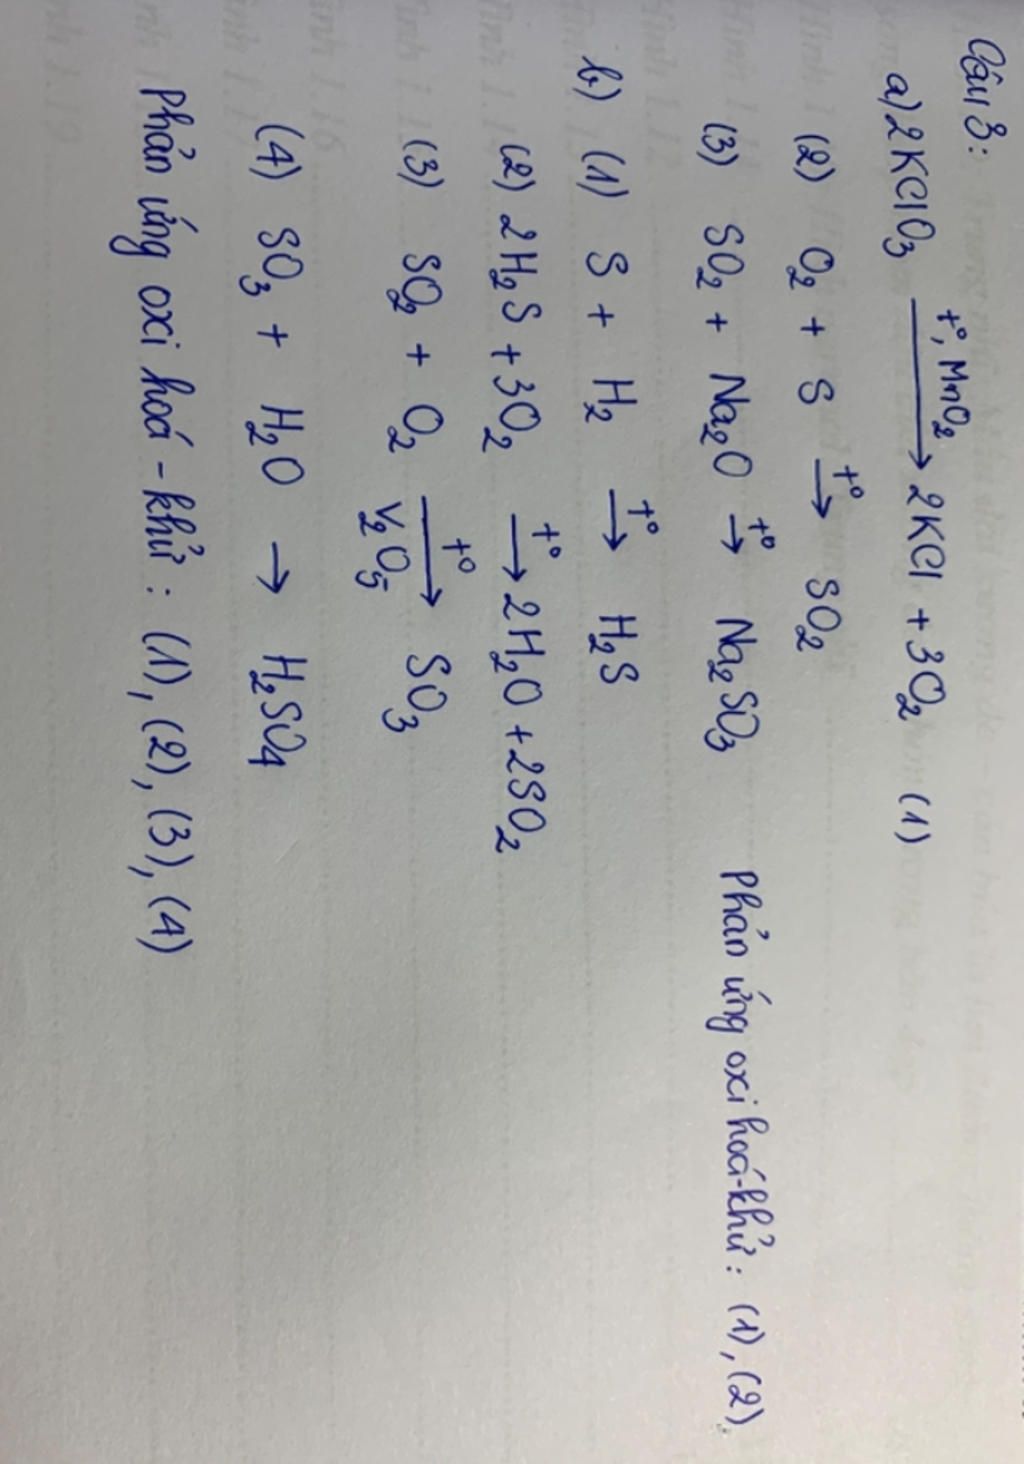 Câu 3:
a) 2KClO3 t°, MnO2 → 2KCl + 3O2 (1)
(2) O2 + S t° → SO2
(3) SO2 + Na2O t° → Na2SO3 Phản ứng oxi hoá-khử: (1), (2).
b) (1) S + H2 t° → H2S
(2) 2H2S + 3O2 t° → 2H2O + 2SO2
(3) SO2 + O2 t° → V2O5 SO3
(4) SO3 + H2O → H2SO4
Phản ứng oxi hoá - khử: (1), (2), (3), (4)